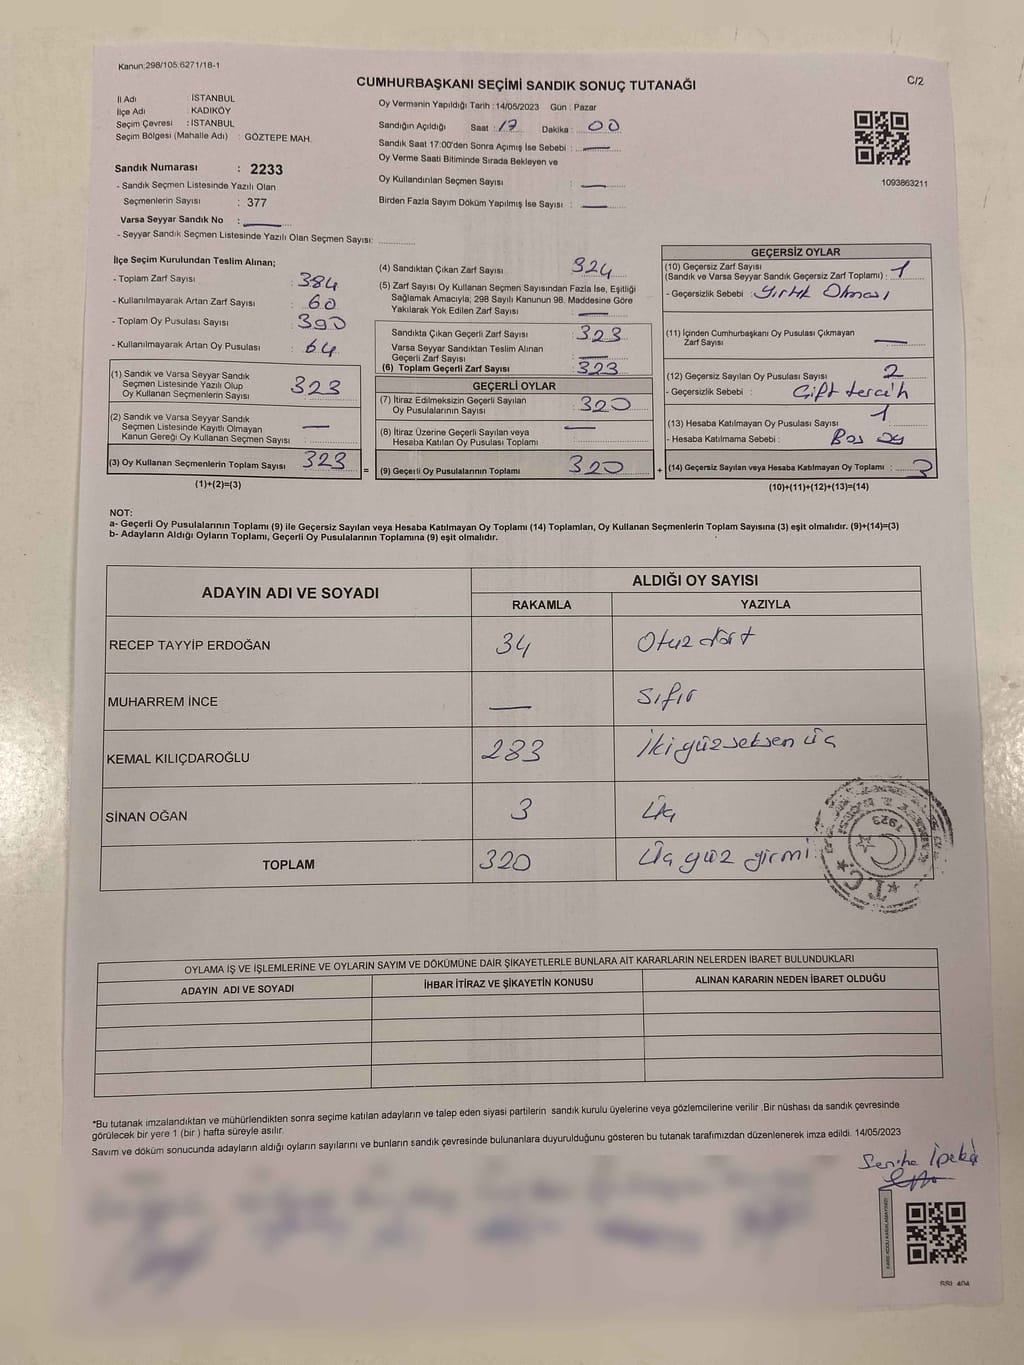 Kanun:298/105;6271/18-1
CUMHURBAŞKANI SEÇİMİ SANDIK SONUÇ TUTANAĞI
C/2
İl Adı : İSTANBUL
İlçe Adı : KADIKÖY
Seçim Çevresi : İSTANBUL
Seçim Bölgesi (Mahalle Adı) : GÖZTEPE MAH.
Sandık Numarası : 2233
- Sandık Seçmen Listesinde Yazılı Olan
Seçmenlerin Sayısı : 377
Varsa Seyyar Sandık No : —
- Seyyar Sandık Seçmen Listesinde Yazılı Olan Seçmen Sayısı:
Oy Vermenin Yapıldığı Tarih : 14/05/2023 Gün : Pazar
Sandığın Açıldığı Saat : 17 Dakika : 00
Sandık Saat 17:00'den Sonra Açımış İse Sebebi : —
Oy Verme Saati Bitiminde Sırada Bekleyen ve
Oy Kullandırılan Seçmen Sayısı : —
Birden Fazla Sayım Döküm Yapılmış İse Sayısı : —
1093863211
İlçe Seçim Kurulundan Teslim Alınan;
- Toplam Zarf Sayısı : 384
- Kullanılmayarak Artan Zarf Sayısı : 60
- Toplam Oy Pusulası Sayısı : 390
- Kullanılmayarak Artan Oy Pusulası : 64
(1) Sandık ve Varsa Seyyar Sandık
Seçmen Listesinde Yazılı Olup
Oy Kullanan Seçmenlerin Sayısı 323
(2) Sandık ve Varsa Seyyar Sandık
Seçmen Listesinde Kayıtlı Olmayan
Kanun Gereği Oy Kullanan Seçmen Sayısı : —
(3) Oy Kullanan Seçmenlerin Toplam Sayısı 323
(1)+(2)=(3)
=
(4) Sandıktan Çıkan Zarf Sayısı 324
(5) Zarf Sayısı Oy Kullanan Seçmen Sayısından Fazla İse, Eşitliği
Sağlamak Amacıyla; 298 Sayılı Kanunun 98. Maddesine Göre
Yakılarak Yok Edilen Zarf Sayısı : —
Sandıkta Çıkan Geçerli Zarf Sayısı : 323
Varsa Seyyar Sandıktan Teslim Alınan
Geçerli Zarf Sayısı : —
(6) Toplam Geçerli Zarf Sayısı : 323
GEÇERLİ OYLAR
(7) İtiraz Edilmeksizin Geçerli Sayılan
Oy Pusulalarının Sayısı : 320
(8) İtiraz Üzerine Geçerli Sayılan veya
Hesaba Katılan Oy Pusulası Toplamı : —
(9) Geçerli Oy Pusulalarının Toplamı 320
+
GEÇERSİZ OYLAR
(10) Geçersiz Zarf Sayısı
(Sandık ve Varsa Seyyar Sandık Geçersiz Zarf Toplamı) : 1
- Geçersizlik Sebebi : Yırtık Olması
(11) İçinden Cumhurbaşkanı Oy Pusulası Çıkmayan
Zarf Sayısı : —
(12) Geçersiz Sayılan Oy Pusulası Sayısı : 2
- Geçersizlik Sebebi : Çift tercih
(13) Hesaba Katılmayan Oy Pusulası Sayısı : 1
- Hesaba Katılmama Sebebi : Boş oy
(14) Geçersiz Sayılan veya Hesaba Katılmayan Oy Toplamı : 3
(10)+(11)+(12)+(13)=(14)
NOT:
a- Geçerli Oy Pusulalarının Toplamı (9) ile Geçersiz Sayılan veya Hesaba Katılmayan Oy Toplamı (14) Toplamları, Oy Kullanan Seçmenlerin Toplam Sayısına (3) eşit olmalıdır. (9)+(14)=(3)
b- Adayların Aldığı Oyların Toplamı, Geçerli Oy Pusulalarının Toplamına (9) eşit olmalıdır.
ADAYIN ADI VE SOYADI
ALDIĞI OY SAYISI
RAKAMLA YAZIYLA
RECEP TAYYİP ERDOĞAN 34 Otuz dört
MUHARREM İNCE — Sıfır
KEMAL KILIÇDAROĞLU 283 İkiyüzseksen üç
SİNAN OĞAN 3 Üç
TOPLAM 320 Üç yüz yirmi
T.C.
1923
OYLAMA İŞ VE İŞLEMLERİNE VE OYLARIN SAYIM VE DÖKÜMÜNE DAİR ŞİKAYETLERLE BUNLARA AİT KARARLARIN NELERDEN İBARET BULUNDUKLARI
ADAYIN ADI VE SOYADI İHBAR İTİRAZ VE ŞİKAYETİN KONUSU ALINAN KARARIN NEDEN İBARET OLDUĞU
*Bu tutanak imzalandıktan ve mühürlendikten sonra seçime katılan adayların ve talep eden siyasi partilerin sandık kurulu üyelerine veya gözlemcilerine verilir .Bir nüshası da sandık çevresinde
görülecek bir yere 1 (bir ) hafta süreyle asılır.
Sayım ve döküm sonucunda adayların aldığı oyların sayılarını ve bunların sandık çevresinde bulunanlara duyurulduğunu gösteren bu tutanak tarafımızdan düzenlenerek imza edildi. 14/05/2023
Seniha İpekçi